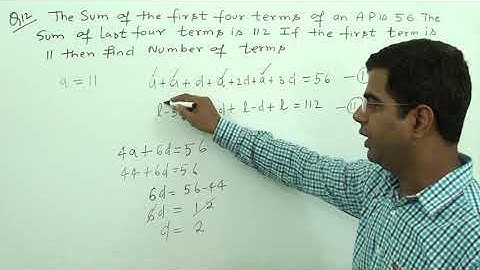 Q12 The Sum of the first four terms of an AP is 56 The
Sum of Last four terms is 112 If the first term is
11 then find Number of terms
a = 11
a + a + d + a + 2d + a + 3d = 56
l - d + l = 112
4a + 6d = 56
44 + 6d = 56
6d = 56 - 44
6d = 12
d = 2